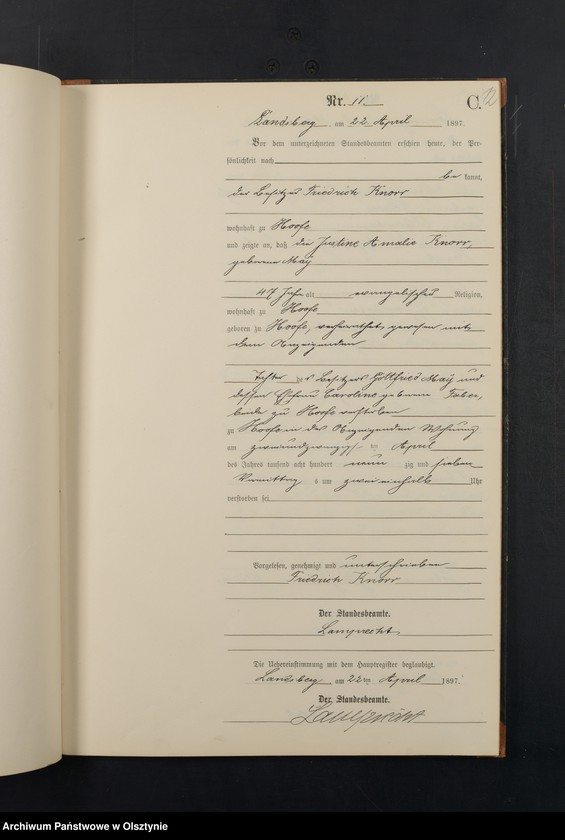 Nr. 11.
C. 12
Landsberg, am 22. April 1897.
Vor dem unterzeichneten Standesbeamten erschien heute, der Per-
sönlichkeit nach
be kannt,
der Besitzer Friedrich Knorr
wohnhaft zu Hoofe
und zeigte an, daß die Justine Amalie Knorr,
geborene May
47 Jahre alt evangelischer Religion,
wohnhaft zu Hoofe
geboren zu Hoofe, verheirathet gewesen mit
dem Anzeigenden
Tochter des Besitzers Gottfried May und
dessen Ehefrau Caroline geborene Faber,
beide zu Hoofe verstorben
zu Hoofe in des Anzeigenden Wohnung
am zweiundzwanzigsten April
des Jahres tausend acht hundert neun zig und sieben
Vormittags um zweieinhalb Uhr
verstorben sei
Vorgelesen, genehmigt und unterschrieben
Friedrich Knorr
Der Standesbeamte.
Lamprecht.
Die Uebereinstimmung mit dem Hauptregister beglaubigt.
Landsberg, am 22ten April 1897.
Der Standesbeamte.
Lamprecht
Archiwum Państwowe w Olsztynie